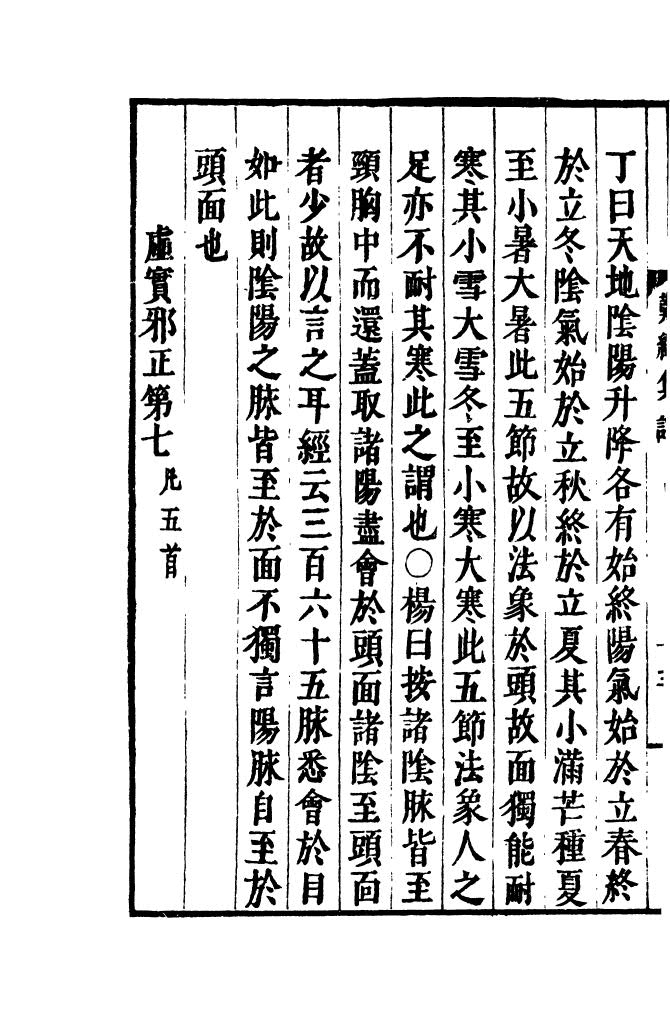 丁曰天地陰陽升降各有始終陽氣始於立春終
於立冬陰氣始於立秋終於立夏其小滿芒種夏
至小暑大暑此五節故以法象於頭故面獨能耐
寒其小雪大雪冬至小寒大寒此五節法象人之
足亦不耐其寒此之謂也○楊曰按諸陰脉皆至
頸胸中而還蓋取諸陽盡會於頭面諸陰至頭面
者少故以言之耳經云三百六十五脉悉會於目
如此則陰陽之脉皆至於面不獨言陽脉自至於
頭面也
虛實邪正第七凡五首